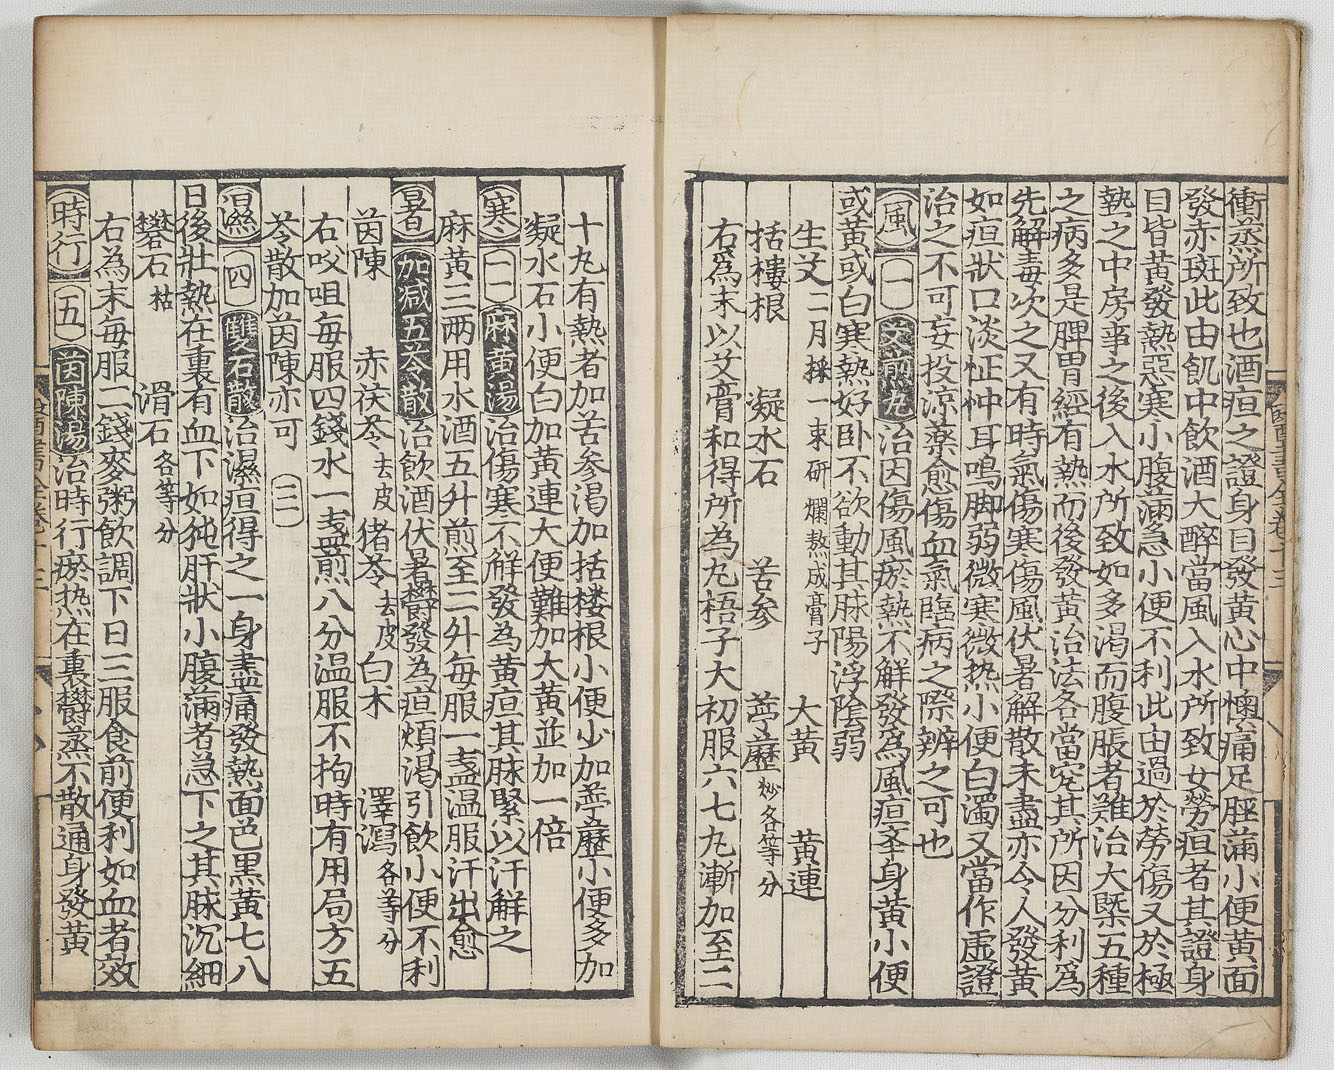 衝蒸所致也酒疸之證身目發黃心中懊痛足脛滿小便黃面
發赤斑此由飢中飲酒大醉當風入水所致女勞疸者其證身
目皆黃發熱惡寒小腹滿急小便不利此由過於勞傷又於極
熱之中房事之後入水所致如多渴而腹脹者難治大槩五種
之病多是脾胃經有熱而後發黃治法各當究其所因分利爲
先解毒次之又有時氣傷寒傷風伏暑解散未盡亦令人發黃
如疸狀口淡怔忡耳鳴脚弱微寒微热小便白濁又當作虛證
治之不可妄投涼藥愈傷血氣臨病之際辨之可也
風 一 艾煎丸 治因傷風瘀熱不解發爲風疸本身黃小便
或黃或白寒熱好卧不欲動其脉陽浮陰弱
生艾 二月採一束研爛熬成膏子 大黃 黃連
括樓根 凝水石 苦参 葶藶 炒各等分
右爲末以艾膏和得所為丸梧子大初服六七丸漸加至二
十丸有熱者加苦参渴加括楼根小便少加葶藶小便多加
凝水石小便白加黃連大便難加大黃並加一倍
寒 二 麻黃湯 治傷寒不解發為黃疸其脉緊以汗解之
麻黃三兩用水酒五升煎至二升每服一盞温服汗出愈
暑 加減五苓散 治飲酒伏暑欝發為疸煩渴引飲小便不利
茵陳 赤茯苓 去皮 猪苓 去皮 白术 澤瀉 各等分
右㕮咀每服四錢水一盞煎八分温服不拘時有用局方五
苓散加茵陳亦可 三
濕 四 雙石散 治濕疸得之一身盡痛發熱面色黑黃七八
日後壯熱在裏有血下如㹠肝狀小腹滿者急下之其脉沉細
礬石 枯 滑石 各等分
右為末每服二錢麥粥飲調下日三服食前便利如血者效
時行 五 茵陳湯 治時行瘀热在裏欝蒸不散通身發黃